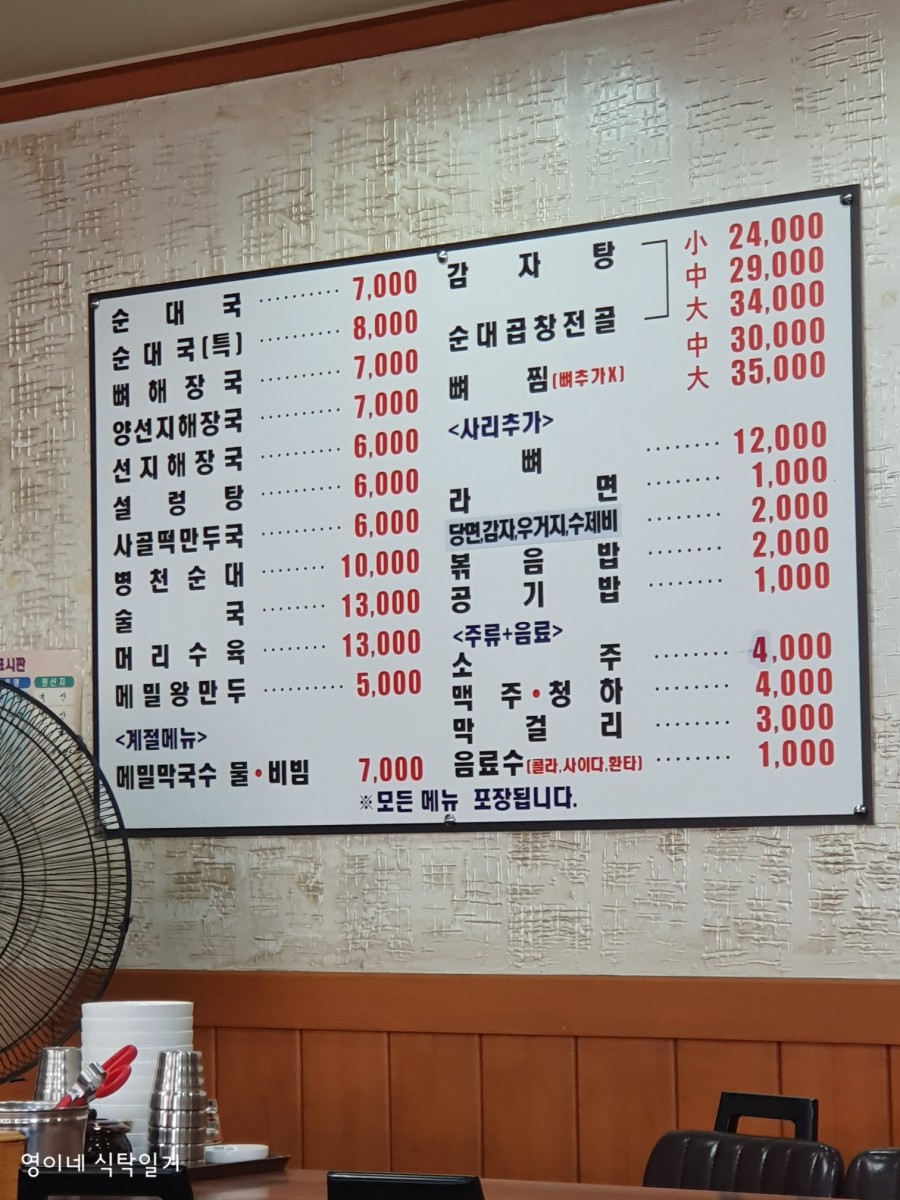 순대국 ·········· 7,000
순대국(특) ········ 8,000
뼈해장국 ·········· 7,000
양선지해장국 ········ 7,000
선지해장국 ········ 6,000
설렁탕 ·········· 6,000
사골떡만두국 ········ 6,000
병천순대 ········ 10,000
술국 ········ 13,000
머리수육 ········ 13,000
메밀왕만두 ·········· 5,000
<계절메뉴>
메밀막국수 물·비빔 7,000
감자탕 小 24,000
中 29,000
순대곱창전골 大 34,000
뼈찜(뼈추가X) 中 30,000
大 35,000
<사리추가>
뼈 ········ 12,000
라면 ········ 1,000
당면,감자,우거지,수제비 ········ 2,000
볶음밥 ········ 2,000
공기밥 ········ 1,000
<주류+음료>
소주 ········ 4,000
맥주·청하 ········ 4,000
막걸리 ········ 3,000
음료수(콜라,사이다,환타) ········ 1,000
※모든 메뉴 포장됩니다.
표시판
원산지
영이네 식탁일기